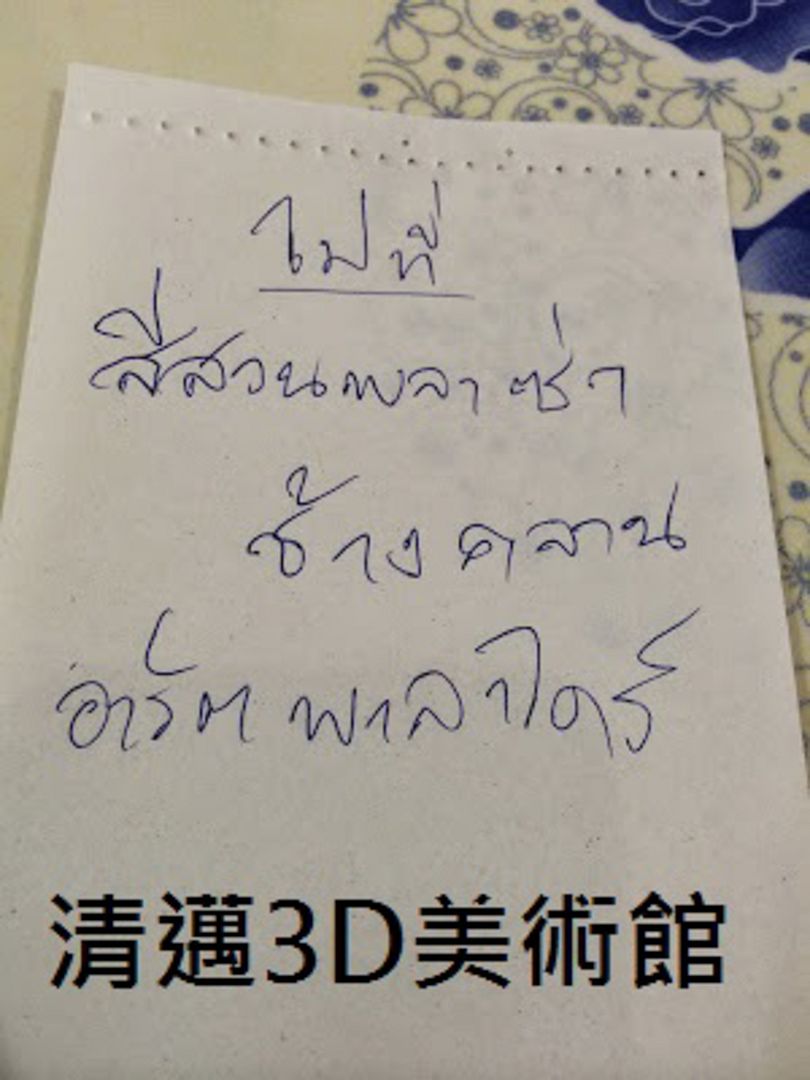 ไปที่
สีสวนพลาซ่า
ช้างคลาน
อาร์ต พาลาไดร์
清邁3D美術館